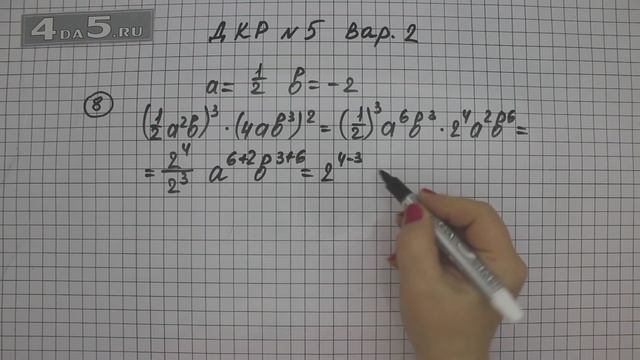 4DA5.RU
ДКР №5 Вар. 2
a = 1/2 b = -2
8 (1/2 a²b)³ · (4ab³)² = (1/2)³ a⁶b³ · 2⁴a²b⁶ =
= 2⁴/2³ a⁶⁺²b³⁺⁶ = 2⁴⁻³